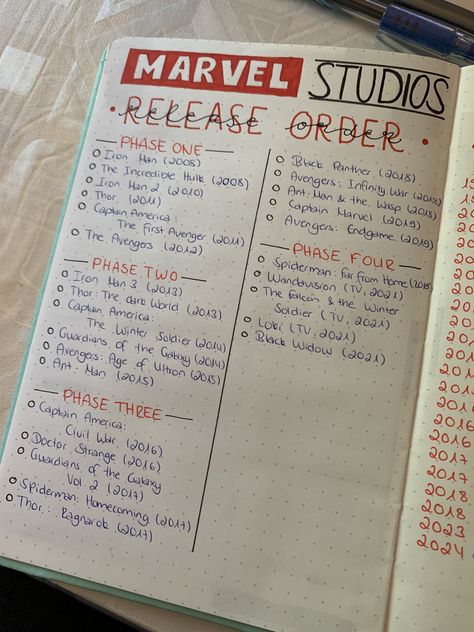 MARVEL STUDIOS
RELEASE ORDER
release order
PHASE ONE
Iron Man (2008)
The Incredible Hulk (2008)
Iron Man 2 (2010)
Thor (2011)
Captain America:
The First Avenger (2011)
The Avengers (2012)
PHASE TWO
Iron Man 3 (2013)
Thor: The dark World (2013)
Captain America:
The Winter Soldier (2014)
Guardians of the Galaxy (2014)
Avengers: Age of Ultron (2015)
Ant-Man (2015)
PHASE THREE
Captain America:
Civil War (2016)
Doctor Strange (2016)
Guardians of the Galaxy
Vol. 2 (2017)
Spiderman: Homecoming (2017)
Thor: Ragnarok (2017)
Black Panther (2018)
Avengers: Infinity War (2018)
Ant-Man & the Wasp (2018)
Captain Marvel (2019)
Avengers: Endgame (2019)
PHASE FOUR
Spiderman: Far from Home
Wandavision (TV, 2021)
The Falcon & the Winter
Soldier (TV, 2021)
Loki (TV, 2021)
Black Widow (2021)
2016
2017
2017
2018
2018
2023
2024